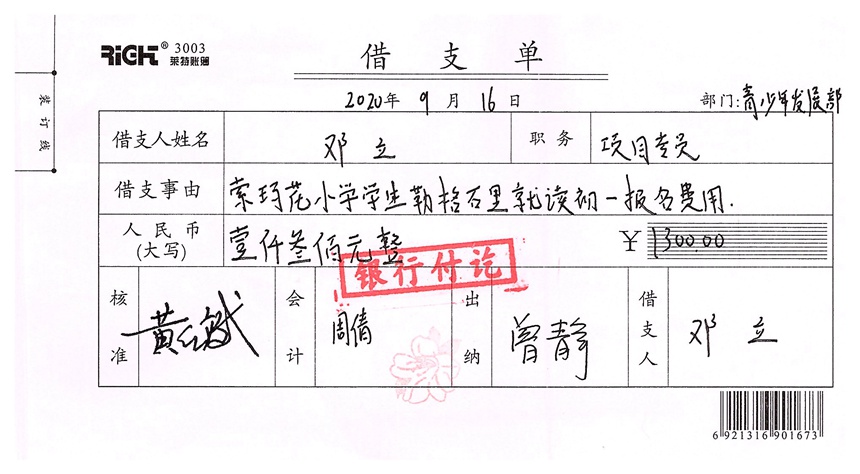 RiGHT® 3003
莱特账簿
借支单
2020年9月16日 部门:青少年发展部
装订线
借支人姓名 邓立 职务 项目专员
借支事由 索玛花小学学生勒格石里就读初一报名费用.
人民币(大写) 壹仟叁佰元整 ¥1300.00
银行付讫
核准 会计 周倩 出纳 曾静 借支人 邓立
6 921316 901673